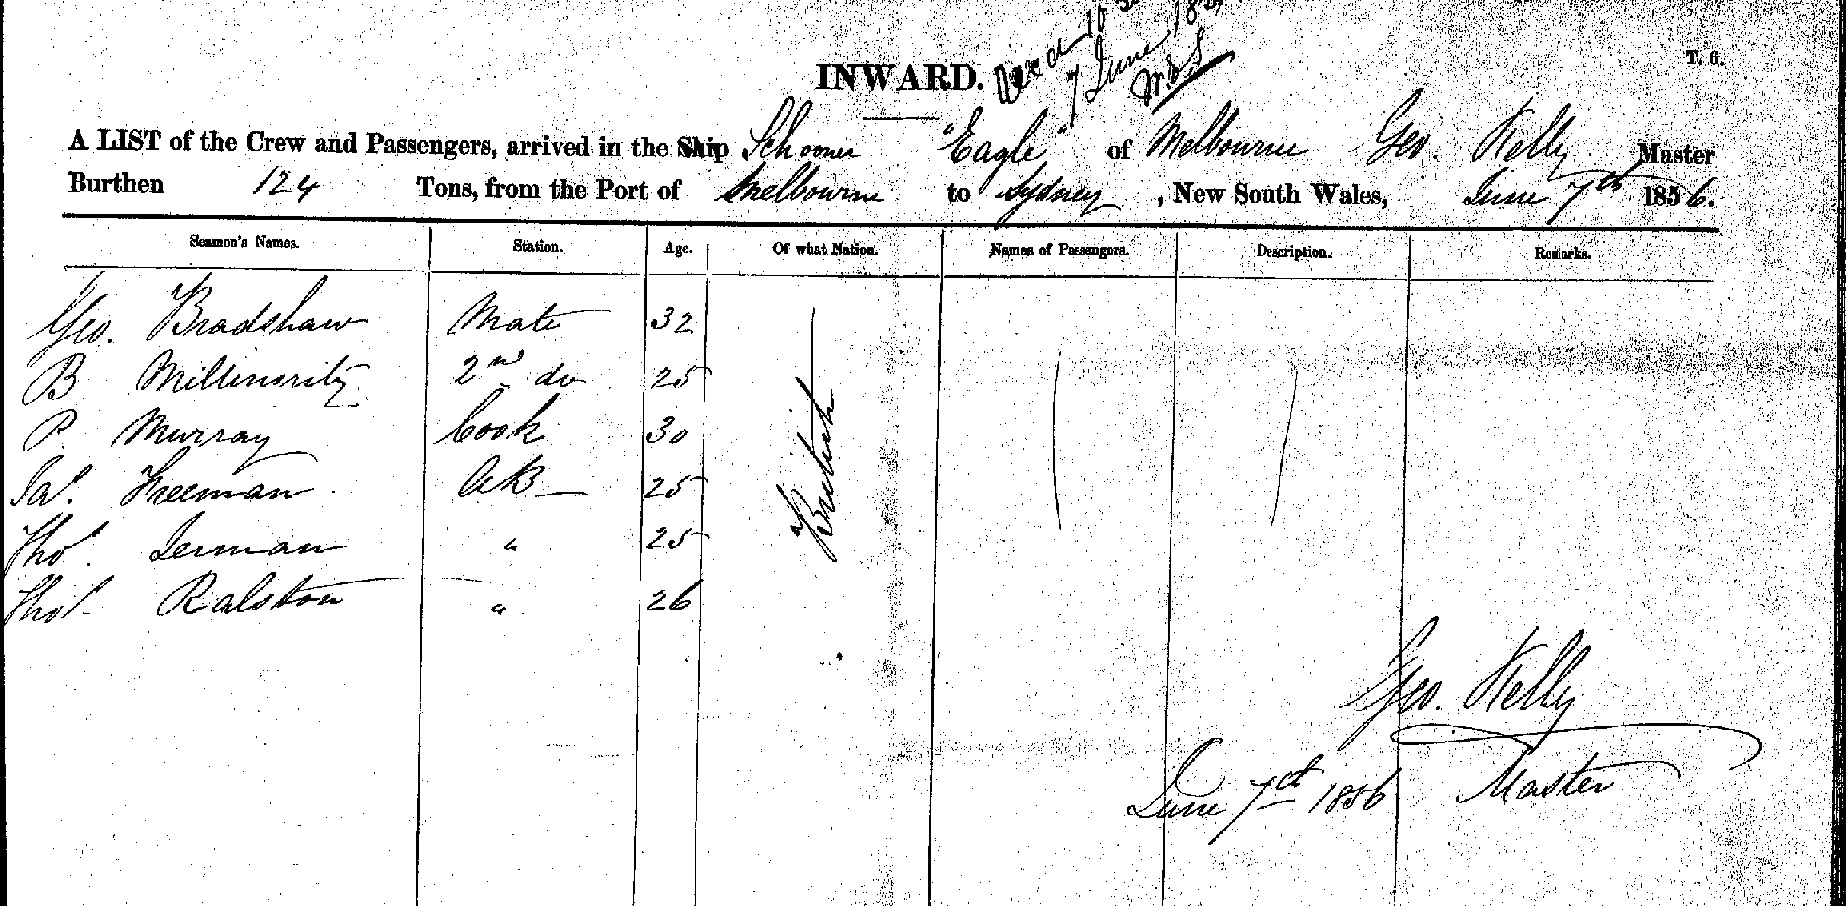 7 June
INWARD.
T. 6.
A LIST of the Crew and Passengers, arrived in the Ship Schooner "Eagle" of Melbourne Geo. Kelly Master
Burthen 124 Tons, from the Port of Melbourne to Sydney, New South Wales, June 7th 1856.
Seamen's Names. Station. Age. Of what Nation. Names of Passengers. Description. Remarks.
Geo. Bradshaw Mate 32
B 2nd do 25
P. Murray Cook 30
Freeman AB 25
Thos. " 25
Thos. Ralston " 26
British
Geo. Kelly
June 7th 1856 Master